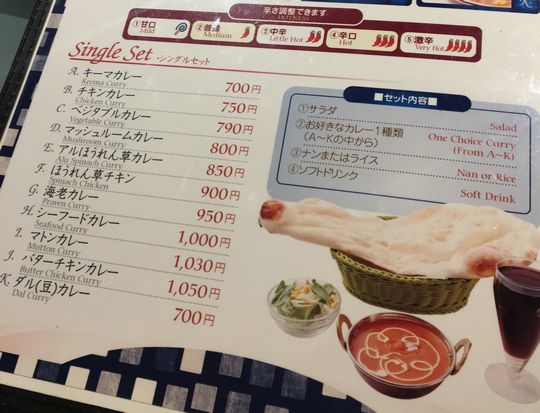 辛さ調整できます
HOTNESS
①甘口 Mild
②普通 Medium
③中辛 Little Hot
④辛口 Hot
⑤激辛 Very Hot
Single Set ・シングルセット
A. キーマカレー 700円
Keema Curry
B. チキンカレー 750円
Chicken Curry
C. ベジタブルカレー 790円
Vegetable Curry
D. マッシュルームカレー 800円
Mushroom Curry
E. アルほうれん草カレー 850円
Alu Spinach Curry
F. ほうれん草チキン 900円
Spinach Chicken
G. 海老カレー 950円
Prawn Curry
H. シーフードカレー 1,000円
Seafood Curry
I. マトンカレー 1,030円
Mutton Curry
J. バターチキンカレー 1,050円
Butter Chicken Curry
K. ダル(豆)カレー 700円
Dal Curry
■セット内容■
①サラダ Salad
②お好きなカレー1種類 One Choice Curry
(A〜Kの中から) (From A~K)
③ナンまたはライス Nan or Rice
④ソフトドリンク Soft Drink